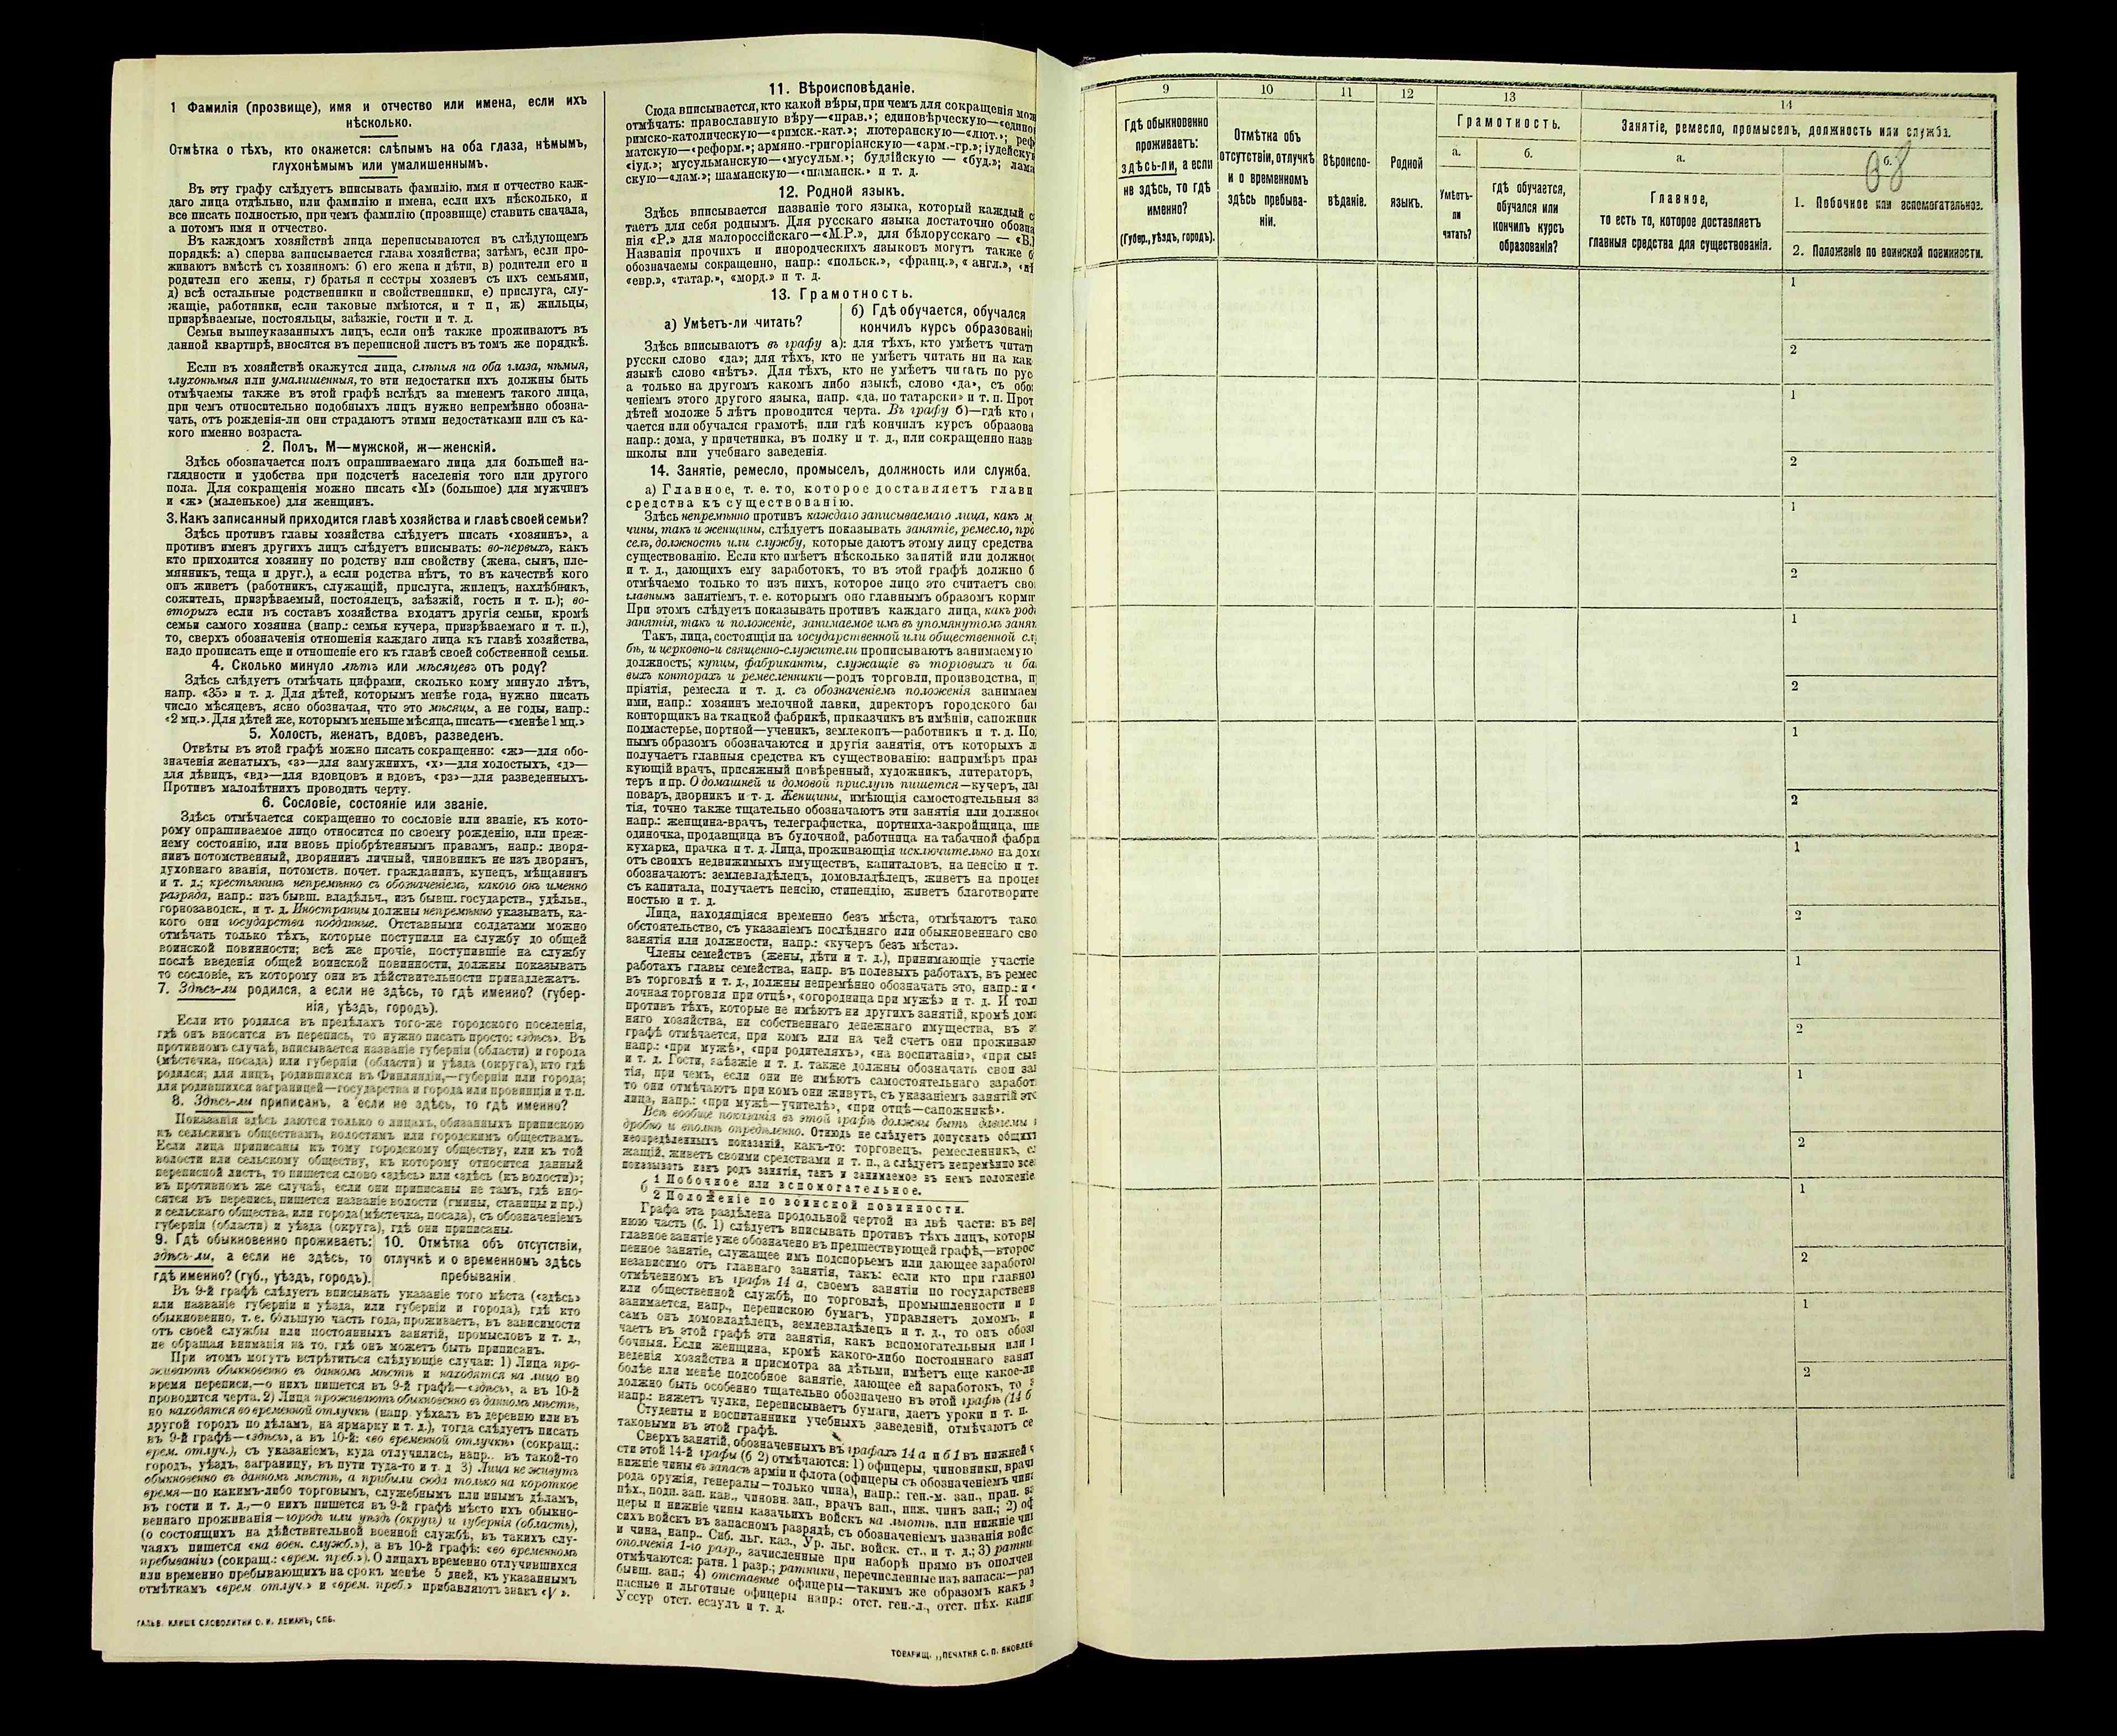 1 Фамилія (прозвище), имя и отчество или имена, если ихъ
нѣсколько.
Отмѣтка о тѣхъ, кто окажется: слѣпымъ на оба глаза, нѣмымъ,
глухонѣмымъ или умалишеннымъ.
Въ эту графу слѣдуетъ вписывать фамилію, имя и отчество каж-
даго лица отдѣльно, или фамилію и имена, если ихъ нѣсколько, и
все писать полностью, при чемъ фамилію (прозвище) ставить сначала,
а потомъ имя и отчество.
Въ каждомъ хозяйствѣ лица переписываются въ слѣдующемъ
порядкѣ: а) сперва записывается глава хозяйства; затѣмъ, если про-
живаютъ вмѣстѣ съ хозяиномъ: б) его жена и дѣти, в) родители его и
родители его жены, г) братья и сестры хозяевъ съ ихъ семьями,
д) всѣ остальные родственники и свойственники, е) прислуга, слу-
жащіе, работники, если таковые имѣются, и т п, ж) жильцы,
призрѣваемые, постояльцы, заѣзжіе, гости и т. д.
Семьи вышеуказанныхъ лицъ, если онѣ также проживаютъ въ
данной квартирѣ, вносятся въ переписной листъ въ томъ же порядкѣ.
Если въ хозяйствѣ окажутся лица, слѣпыя на оба глаза, нѣмыя,
глухонѣмыя или умалишенныя, то эти недостатки ихъ должны быть
отмѣчаемы также въ этой графѣ вслѣдъ за именемъ такого лица,
при чемъ относительно подобныхъ лицъ нужно непремѣнно обозна-
чать, отъ рожденія-ли они страдаютъ этими недостатками или съ ка-
кого именно возраста.
2. Полъ. М—мужской, ж—женскій.
Здѣсь обозначается полъ опрашиваемаго лица для большей на-
глядности и удобства при подсчетѣ населенія того или другого
пола. Для сокращенія можно писать «М» (большое) для мужчинъ
и «ж» (маленькое) для женщинъ.
3. Какъ записанный приходится главѣ хозяйства и главѣ своей семьи?
Здѣсь противъ главы хозяйства слѣдуетъ писать «хозяинъ», а
противъ именъ другихъ лицъ слѣдуетъ вписывать: во-первыхъ, какъ
кто приходится хозяину по родству или свойству (жена, сынъ, пле-
мянникъ, теща и друг.), а если родства нѣтъ, то въ качествѣ кого
онъ живетъ (работникъ, служащій, прислуга, жилецъ, нахлѣбникъ,
сожитель, призрѣваемый, постоялецъ, заѣзжій, гость и т. п.); во-
вторыхъ если въ составъ хозяйства входятъ другія семьи, кромѣ
семьи самого хозяина (напр.: семья кучера, призрѣваемаго и т. п.),
то, сверхъ обозначенія отношенія каждаго лица къ главѣ хозяйства,
надо прописать еще и отношеніе его къ главѣ своей собственной семьи.
4. Сколько минуло лѣтъ или мѣсяцевъ отъ роду?
Здѣсь слѣдуетъ отмѣчать цифрами, сколько кому минуло лѣтъ,
напр. «35» и т. д. Для дѣтей, которымъ менѣе года, нужно писать
число мѣсяцевъ, ясно обозначая, что это мѣсяцы, а не годы, напр.:
«2 мц.». Для дѣтей же, которымъ меньше мѣсяца, писать—«менѣе 1 мц.»
5. Холостъ, женатъ, вдовъ, разведенъ.
Отвѣты въ этой графѣ можно писать сокращенно: «ж»—для обо-
значенія женатыхъ, «з»—для замужнихъ, «х»—для холостыхъ, «д»—
для дѣвицъ, «вд»—для вдовцовъ и вдовъ, «рз»—для разведенныхъ.
Противъ малолѣтнихъ проводить черту.
6. Сословіе, состояніе или званіе.
Здѣсь отмѣчается сокращенно то сословіе или званіе, къ кото-
рому опрашиваемое лицо относится по своему рожденію, или преж-
нему состоянію, или вновь пріобрѣтеннымъ правамъ, напр.: дворя-
нинъ потомственный, дворянинъ личный, чиновникъ не изъ дворянъ,
духовнаго званія, потомств. почет. гражданинъ, купецъ, мѣщанинъ
и т. д.; крестьянинъ непремѣнно съ обозначеніемъ, какого онъ именно
разряда, напр.: изъ бывш. владѣльч., изъ бывш. государств., удѣльн.,
горнозаводск., и т. д. Иностранцы должны непремѣнно указывать, ка-
кого они государства подданные. Отставными солдатами можно
отмѣчать только тѣхъ, которые поступили на службу до общей
воинской повинности; всѣ же прочіе, поступившіе на службу
послѣ введенія общей воинской повинности, должны показывать
то сословіе, къ которому они въ дѣйствительности принадлежатъ.
7. Здѣсь-ли родился, а если не здѣсь, то гдѣ именно? (губер-
нія, уѣздъ, городъ).
Если кто родился въ предѣлахъ того-же городского поселенія,
гдѣ онъ вносится въ перепись, то нужно писать просто: «здѣсь». Въ
противномъ случаѣ, вписывается названіе губерніи (области) и города
(мѣстечка, посада) или губерніи (области) и уѣзда (округа), кто гдѣ
родился; для лицъ, родившихся въ Финляндіи,—губерніи или города;
для родившихся заграницей—государства и города или провинціи и т.п.
8. Здѣсь-ли приписанъ, а если не здѣсь, то гдѣ именно?
Показанія здѣсь даются только о лицахъ, обязанныхъ припискою
къ сельскимъ обществамъ, волостямъ или городскимъ обществамъ.
Если лица приписаны къ тому городскому обществу, или къ той
волости или сельскому обществу, къ которому относится данный
переписной листъ, то пишется слово «здѣсь» или «здѣсь (къ волости)»;
въ противномъ же случаѣ, если они приписаны не тамъ, гдѣ вно-
сятся въ перепись, пишется названіе волости (гмины, станицы и пр.)
и сельскаго общества, или города (мѣстечка, посада), съ обозначеніемъ
губерніи (области) и уѣзда (округа), гдѣ они приписаны.
9. Гдѣ обыкновенно проживаетъ:
здѣсь-ли, а если не здѣсь, то
гдѣ именно? (губ., уѣздъ, городъ).
10. Отмѣтка объ отсутствіи,
отлучкѣ и о временномъ здѣсь
пребываніи.
Въ 9-й графѣ слѣдуетъ вписывать указаніе того мѣста («здѣсь»
или названіе губерніи и уѣзда, или губерніи и города), гдѣ кто
обыкновенно, т. е. бо́льшую часть года, проживаетъ, въ зависимости
отъ своей службы или постоянныхъ занятій, промысловъ и т. д.,
не обращая вниманія на то, гдѣ онъ можетъ быть приписанъ.
При этомъ могутъ встрѣтиться слѣдующіе случаи: 1) Лица про-
живаютъ обыкновенно въ данномъ мѣстѣ и находятся на лицо во
время переписи,—о нихъ пишется въ 9-й графѣ—«здѣсь», а въ 10-й
проводится черта. 2) Лица проживаютъ обыкновенно въ данномъ мѣстѣ,
но находятся во временной отлучкѣ (напр. уѣхалъ въ деревню или въ
другой городъ по дѣламъ, на ярмарку и т. д.), тогда слѣдуетъ писать
въ 9-й графѣ—«здѣсь», а въ 10-й: «во временной отлучкѣ» (сокращ.:
врем. отлуч.), съ указаніемъ, куда отлучились, напр.. въ такой-то
городъ, уѣздъ, заграницу, въ пути туда-то и т. д 3) Лица не живутъ
обыкновенно въ данномъ мѣстѣ, а прибыли сюда только на короткое
время—по какимъ-либо торговымъ, служебнымъ или инымъ дѣламъ,
въ гости и т. д.,—о нихъ пишется въ 9-й графѣ мѣсто ихъ обыкно-
веннаго проживанія—городъ или уѣздъ (округъ) и губернія (область),
(о состоящихъ на дѣйствительной военной службѣ, въ такихъ слу-
чаяхъ пишется «на воен. служб.»), а въ 10-й графѣ: «во временномъ
пребываніи» (сокращ.: «врем. преб.»). О лицахъ временно отлучившихся
или временно пребывающихъ на срокъ менѣе 5 дней, къ указаннымъ
отмѣткамъ «врем. отлуч.» и «врем. преб.» прибавляютъ знакъ «V».
ГАЛЬВ. КЛИШЕ СЛОВОЛИТНИ О. И. ЛЕМАНЪ, СПБ.
11. Вѣроисповѣданіе.
Сюда вписывается, кто какой вѣры, при чемъ для сокращенія мож
отмѣчать: православную вѣру—«прав.»; единовѣрческую—«едино
римско-католическую—«римск.-кат.»; лютеранскую—«лют.»; реф
матскую—«реформ.»; армяно-григоріанскую—«арм.-гр.»; іудейску
«іуд.»; мусульманскую—«мусульм.»; буддійскую — «буд.»; лама
скую—«лам.»; шаманскую—«шаманск.» и т. д.
12. Родной языкъ.
Здѣсь вписывается названіе того языка, который каждый с
таетъ для себя роднымъ. Для русскаго языка достаточно обозна
нія «Р.» для малороссійскаго—«М.Р.», для бѣлорусскаго — «Б.
Названія прочихъ и инородческихъ языковъ могутъ также б
обозначаемы сокращенно, напр.: «польск.», «франц.», «англ.», «нѣ
«евр.», «татар.», «морд.» и т. д.
13. Грамотность.
а) Умѣетъ-ли читать?
б) Гдѣ обучается, обучался
кончилъ курсъ образовані
Здѣсь вписываютъ въ графу а): для тѣхъ, кто умѣетъ читат
русски слово «да»; для тѣхъ, кто не умѣетъ читать ни на как
языкѣ слово «нѣтъ». Для тѣхъ, кто не умѣетъ читать по рус
а только на другомъ какомъ либо языкѣ, слово «да», съ обо
ченіемъ этого другого языка, напр. «да, по татарски» и т. п. Прот
дѣтей моложе 5 лѣтъ проводится черта. Въ графу б)—гдѣ кто
чается или обучался грамотѣ, или гдѣ кончилъ курсъ образова
напр.: дома, у причетника, въ полку и т. д., или сокращенно назв
школы или учебнаго заведенія.
14. Занятіе, ремесло, промыселъ, должность или служба.
а) Главное, т. е. то, которое доставляетъ главн
средства къ существованію.
Здѣсь непремѣнно противъ каждаго записываемаго лица, какъ м
чины, такъ и женщины, слѣдуетъ показывать занятіе, ремесло, про
селъ, должность или службу, которые даютъ этому лицу средства
существованію. Если кто имѣетъ нѣсколько занятій или должнос
и т. д., дающихъ ему заработокъ, то въ этой графѣ должно б
отмѣчаемо только то изъ нихъ, которое лицо это считаетъ сво
главнымъ занятіемъ, т. е. которымъ оно главнымъ образомъ корми
При этомъ слѣдуетъ показывать противъ каждаго лица, какъ род
занятія, такъ и положеніе, занимаемое имъ въ упомянутомъ заня
Такъ, лица, состоящія на государственной или общественной сл
бѣ, и церковно-и священно-служители прописываютъ занимаемую
должность; купцы, фабриканты, служащіе въ торговыхъ и ба
выхъ конторахъ и ремесленники—родъ торговли, производства, п
пріятія, ремесла и т. д. съ обозначеніемъ положенія занимаем
ими, напр.: хозяинъ мелочной лавки, директоръ городского ба
конторщикъ на ткацкой фабрикѣ, приказчикъ въ имѣніи, сапожник
подмастерье, портной—ученикъ, землекопъ—работникъ и т. д. По
нымъ образомъ обозначаются и другія занятія, отъ которыхъ л
получаетъ главныя средства къ существованію: напримѣръ прак
кующій врачъ, присяжный повѣренный, художникъ, литераторъ,
теръ и пр. О домашней и домовой прислугѣ пишется—кучеръ, ла
поваръ, дворникъ и т. д. Женщины, имѣющія самостоятельныя за
тія, точно также тщательно обозначаютъ эти занятія или должнос
напр.: женщина-врачъ, телеграфистка, портниха-закройщица, шв
одиночка, продавщица въ булочной, работница на табачной фабри
кухарка, прачка и т. д. Лица, проживающія исключительно на дохо
отъ своихъ недвижимыхъ имуществъ, капиталовъ, на пенсію и т.
обозначаютъ: землевладѣлецъ, домовладѣлецъ, живетъ на процен
съ капитала, получаетъ пенсію, стипендію, живетъ благотворите
ностью и т. д.
Лица, находящіяся временно безъ мѣста, отмѣчаютъ тако
обстоятельство, съ указаніемъ послѣдняго или обыкновеннаго сво
занятія или должности, напр.: «кучеръ безъ мѣста».
Члены семействъ (жены, дѣти и т. д.), принимающіе участіе
работахъ главы семейства, напр. въ полевыхъ работахъ, въ ремес
въ торговлѣ и т. д., должны непремѣнно обозначать это, напр.: и «
лочная торговля при отцѣ», «огородница при мужѣ» и т. д. И тол
противъ тѣхъ, которые не имѣютъ ни другихъ занятій, кромѣ дома
няго хозяйства, ни собственнаго денежнаго имущества, въ э
графѣ отмѣчается, при комъ или на чей счетъ они проживаю
напр.: «при мужѣ», «при родителяхъ», «на воспитаніи», «при сын
и т. д. Гости, заѣзжіе и т. д. также должны обозначать свои зан
тія, при чемъ, если они не имѣютъ самостоятельнаго заработ
то они отмѣчаютъ при комъ они живутъ, съ указаніемъ занятій это
лица, напр.: «при мужѣ—учителѣ», «при отцѣ—сапожникѣ».
Всѣ вообще показанія въ этой графѣ должны быть даваемы
дробно и вполнѣ опредѣленно. Отнюдь не слѣдуетъ допускать общихъ
неопредѣленныхъ показаній, какъ-то: торговецъ, ремесленникъ, с
жащій, живетъ своими средствами и т. п., а слѣдуетъ непремѣнно все
показывать какъ родъ занятія, такъ и занимаемое въ немъ положеніе
б 1 Побочное или вспомогательное.
2 Положеніе по воинской повинности.
Графа эта раздѣлена продольной чертой на двѣ части: въ вер
нюю часть (б. 1) слѣдуетъ вписывать противъ тѣхъ лицъ, которы
главное занятіе уже обозначено въ предшествующей графѣ,—второс
пенное занятіе, служащее имъ подспорьемъ или дающее заработо
независимо отъ главнаго занятія, такъ: если кто при главно
отмѣченномъ въ графѣ 14 а, своемъ занятіи по государственн
или общественной службѣ, по торговлѣ, промышленности и п
занимается, напр., перепискою бумагъ, управляетъ домомъ, и
самъ онъ домовладѣлецъ, землевладѣлецъ и т. д., то онъ обоз
чаетъ въ этой графѣ эти занятія, какъ вспомогательныя или п
бочныя. Если женщина, кромѣ какого-либо постояннаго занят
веденія хозяйства и присмотра за дѣтьми, имѣетъ еще какое-ли
болѣе или менѣе подсобное занятіе, дающее ей заработокъ, то э
должно быть особенно тщательно обозначено въ этой графѣ (14 б
напр.: вяжетъ чулки, переписываетъ бумаги, даетъ уроки и т. п.
Студенты и воспитанники учебныхъ заведеній, отмѣчаютъ се
таковыми въ этой графѣ.
Сверхъ занятій, обозначенныхъ въ графахъ 14 а и б 1 въ нижней ч
сти этой 14-й графы (б 2) отмѣчаются: 1) офицеры, чиновники, врачи
нижніе чины въ запасѣ арміи и флота (офицеры съ обозначеніемъ чина
рода оружія, генералы—только чина), напр.: ген.-м. зап., прап. за
пѣх., подп. зап. кав., чиновн. зап., врачъ зап., ниж. чинъ зап.; 2) оф
церы и нижніе чины казачьихъ войскъ на льготѣ, или нижніе чи
сихъ войскъ въ запасномъ разрядѣ, съ обозначеніемъ названія войс
и чина, напр.. Сиб. льг. каз., Ур. льг. войск. ст., и т. д.; 3) ратни
ополченія 1-го разр., зачисленные при наборѣ прямо въ ополчен
отмѣчаются: ратн. 1 разр.; ратники, перечисленные изъ запаса:—рат
бывш. зап.; 4) отставные офицеры—такимъ же образомъ какъ з
пасные и льготные офицеры напр.: отст. ген.-л., отст. пѣх. капит
Уссур отст. есаулъ и т. д.
ТОВАРИЩ. „ПЕЧАТНЯ С. П. ЯКОВЛЕВ
9 10 11 12 13 14
Гдѣ обыкновенно
проживаетъ:
здѣсь-ли, а если
не здѣсь, то гдѣ
именно?
(Губер., уѣздъ, городъ).
Отмѣтка объ
отсутствіи, отлучкѣ
и о временномъ
здѣсь пребыва-
ніи.
Вѣроиспо-
вѣданіе.
Родной
языкъ.
Грамотность.
а.
Умѣетъ-
ли
читать?
б.
гдѣ обучается,
обучался или
кончилъ курсъ
образованія?
Занятіе, ремесло, промыселъ, должность или служба.
а.
Главное,
то есть то, которое доставляетъ
главныя средства для существованія.
б.
68
1. Побочное или вспомогательное.
2. Положеніе по воинской повинности.
1
2
1
2
1
2
1
2
1
2
1
2
1
2
1
2
1
2
1
2